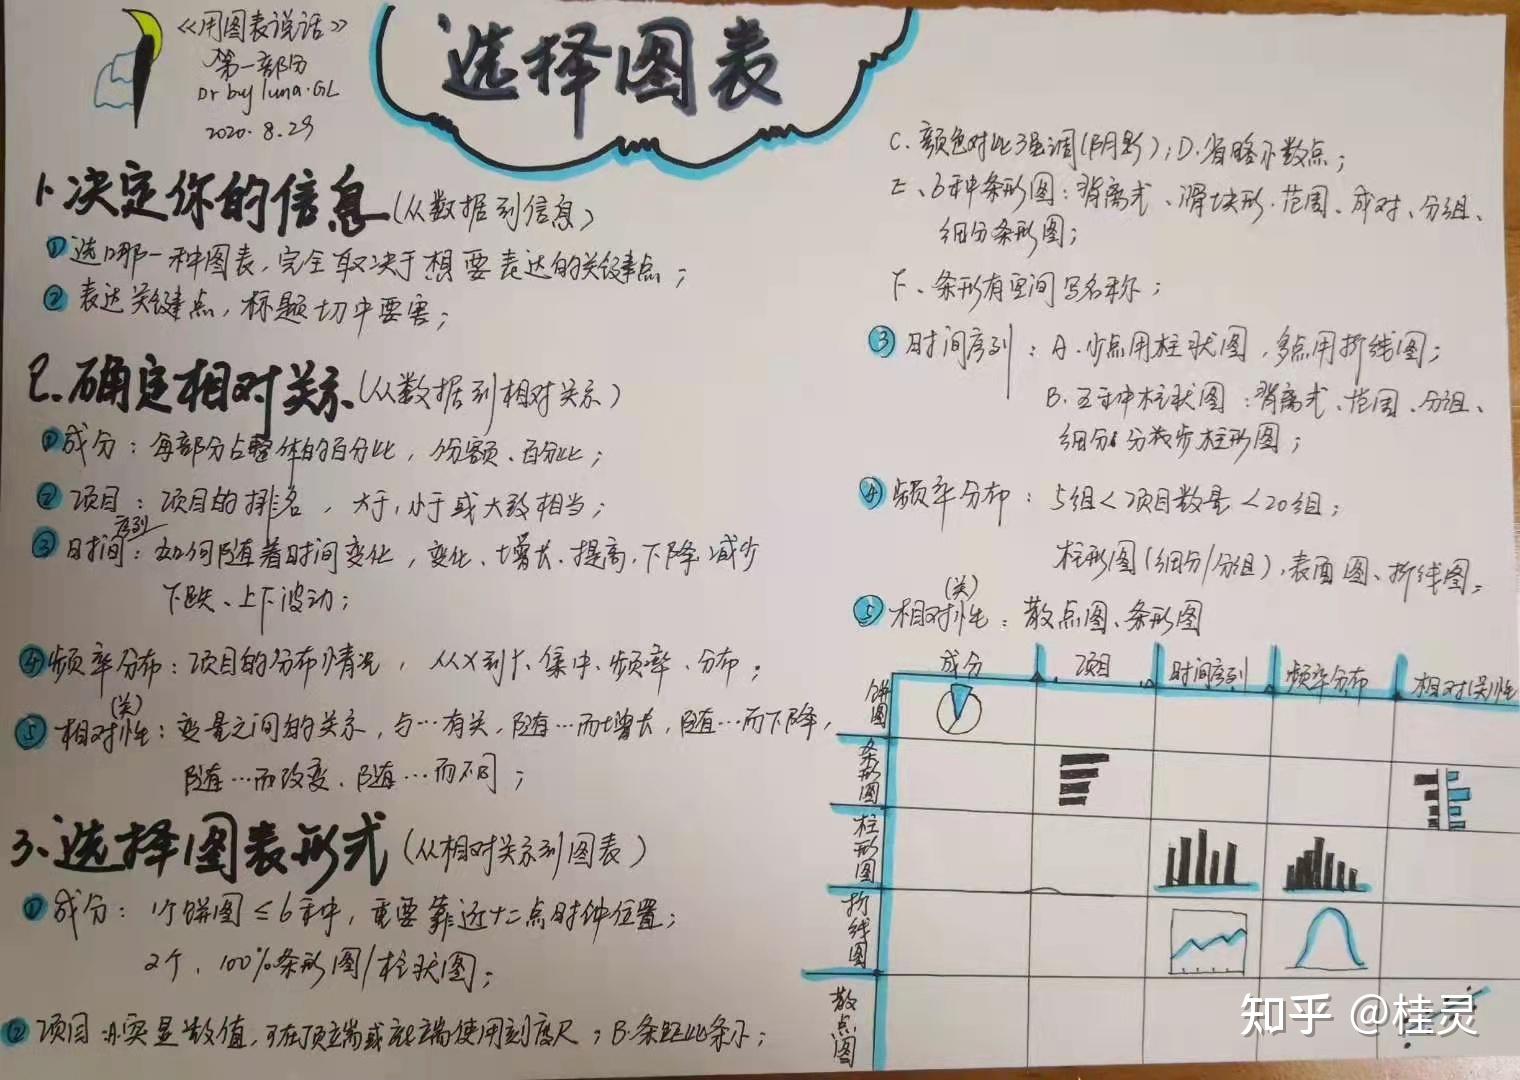 《用图表说话》
第一部份
Dr by luna·GL
2020.8.29
选择图表
1.决定你的信息(从数据到信息)
①选哪一种图表,完全取决于想要表达的关键点;
②表达关键点,标题切中要害;
2.确定相对关系(从数据到相对关系)
①成分:每部分占整体的百分比,份额、百分比;
②项目:项目的排名,大于,小于或大致相当;
③时间序列:如何随着时间变化,变化、增长、提高,下降减少
下跌、上下波动;
④频率分布:项目的分布情况,从X到Y、集中、频率、分布;
⑤相对(关)性:变量之间的关系,与…有关,随…而增长,随…而下降,
随…而改变、随…而不同;
3、选择图表形式(从相对关系到图表)
①成分:1个饼图≤6种,重要靠近十二点时钟位置;
2个、100%条形图/柱状图;
②项目:A.突显数值,可在顶端或底端使用刻度尺;B.条距比条小;
C.颜色对比强调(阴影);D.省略小数点;
E、6种条形图:背离式、滑块形、范围、成对、分组、
细分条形图;
F、条形有空间写名称;
③时间序列:A.少点用柱状图,多点用折线图;
B.五种柱状图:背离式、范围、分组、
细分、分级步柱形图;
④频率分布:5组<项目数量<20组;
柱形图(细分/分组),表面图、折线图。
⑤相对(关)性:散点图、条形图
成分 项目 时间序列 频率分布 相对(关)性
饼图
条形图
柱形图
折线图
散点图
知乎 @桂灵